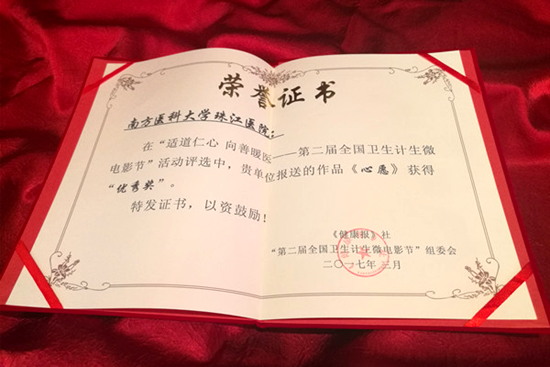 荣誉证书
南方医科大学珠江医院：
在“适道仁心 向善暖医——第二届全国卫生计生微
电影节”活动评选中，贵单位报送的作品《心愿》获得
“优秀奖”。
特发证书，以资鼓励！
《健康报》社
“第二届全国卫生计生微电影节”组委会
二〇一七年三月